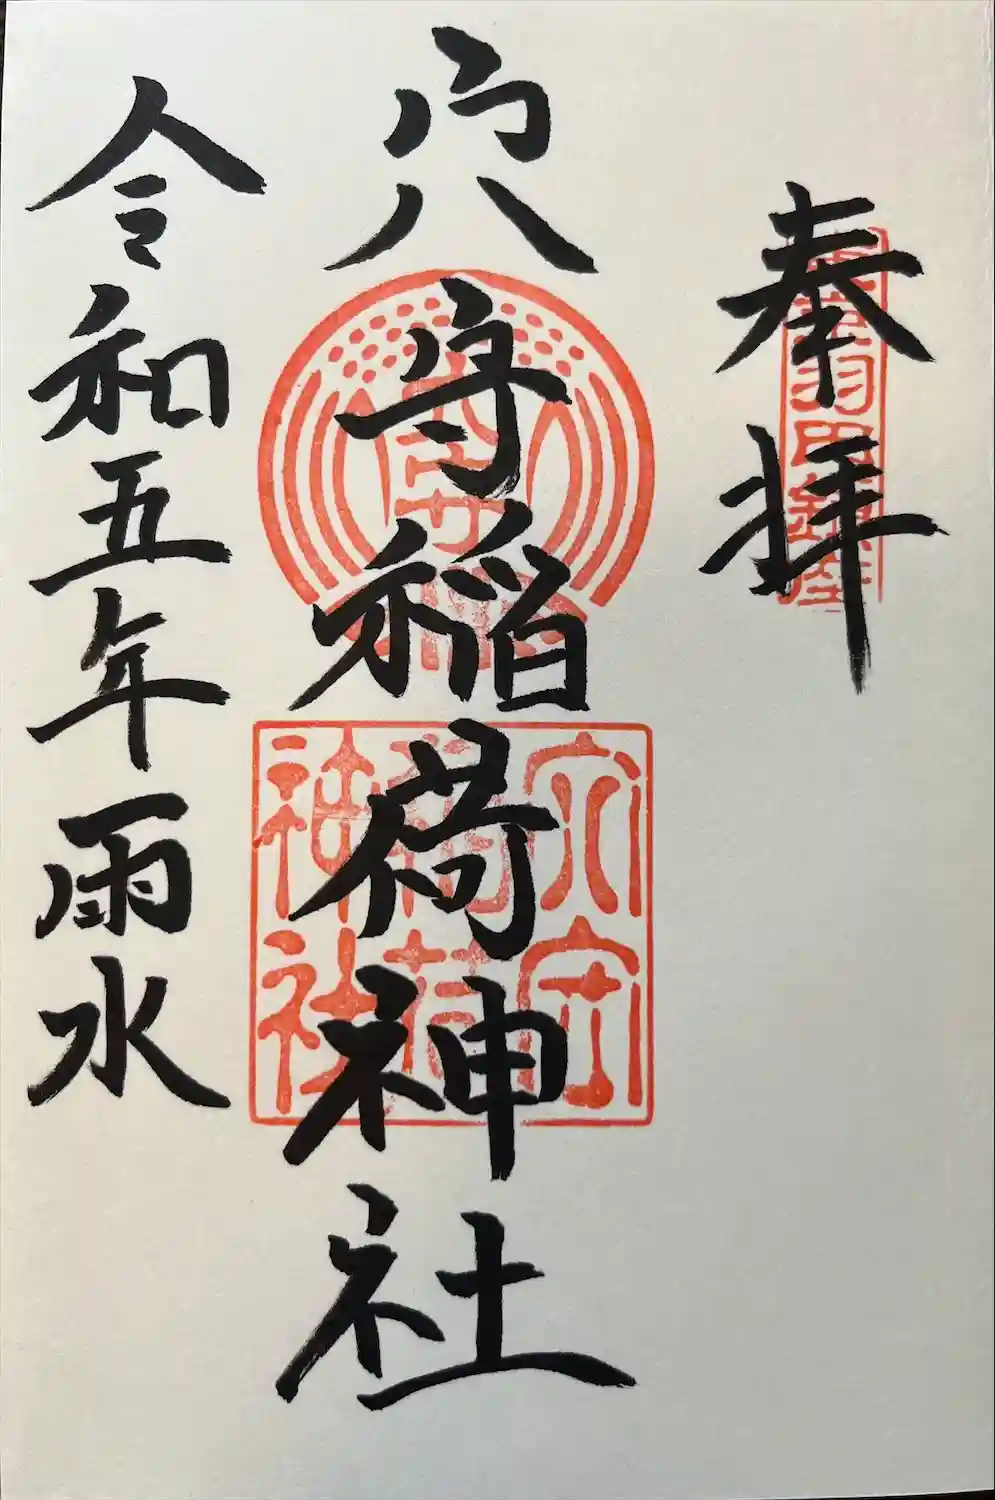 奉拝
穴守稲荷神社
穴守
稲荷
神社
令和五年雨水